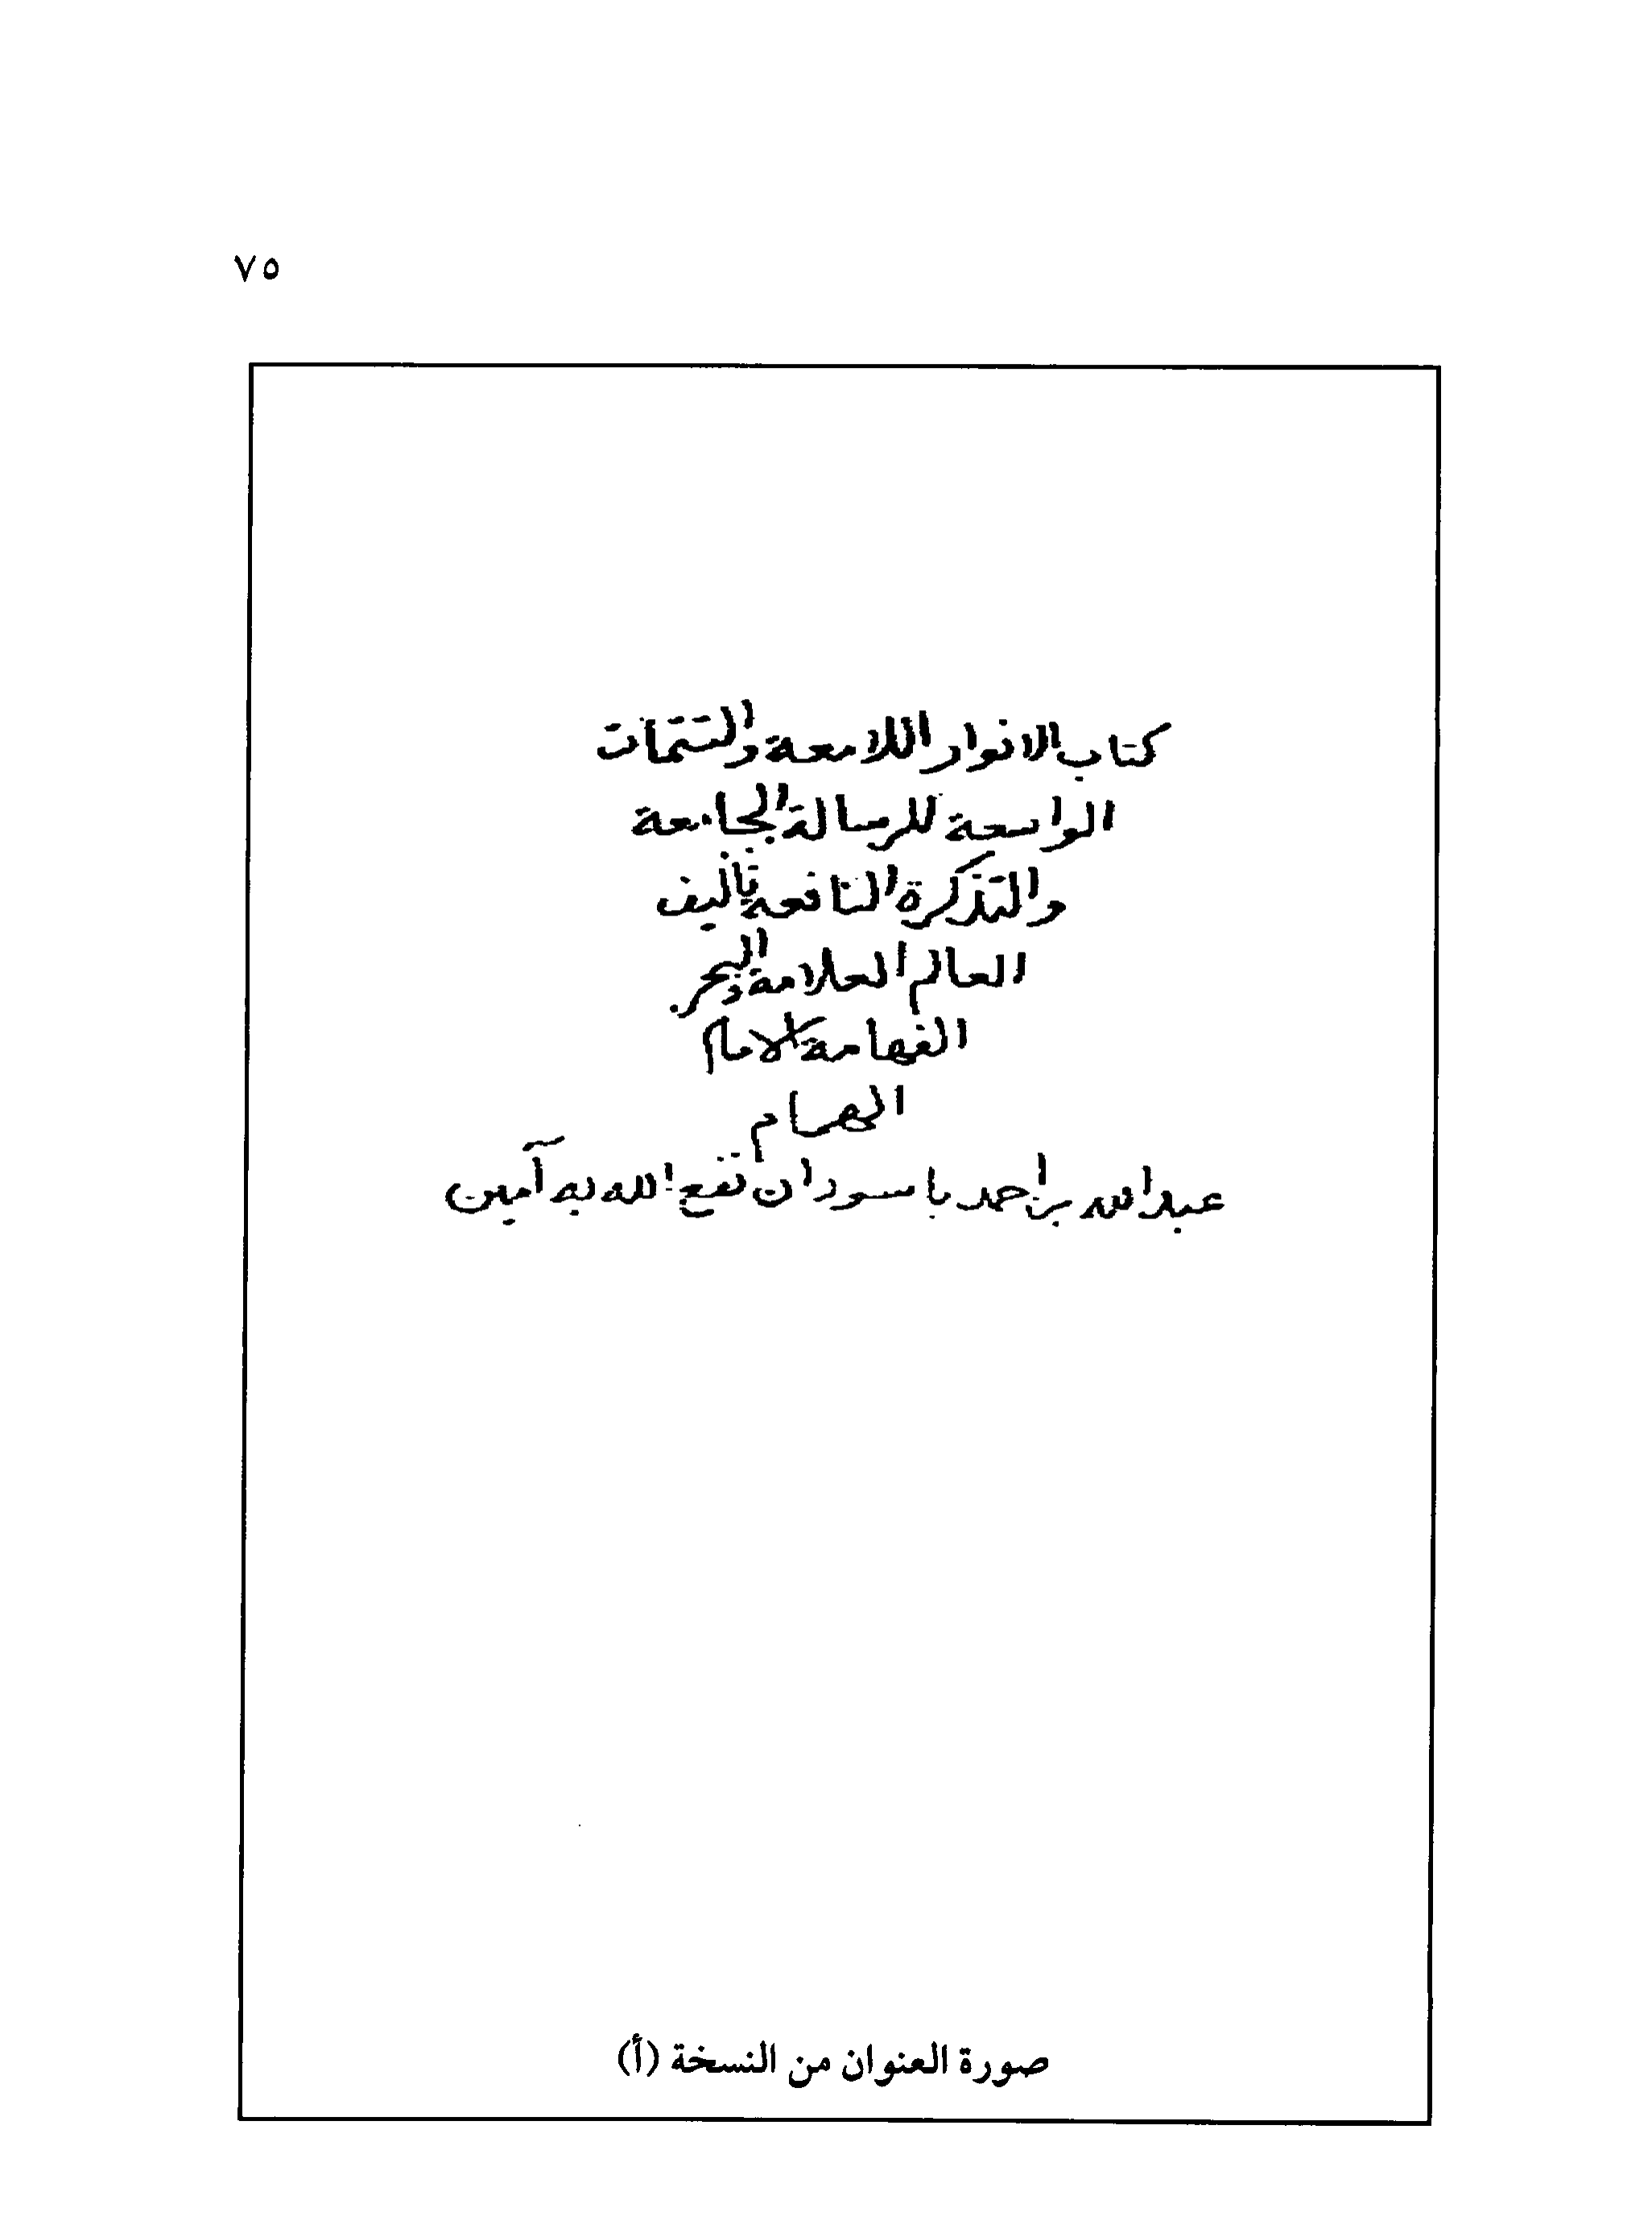 ٧٥
كتاب الانوار اللامعة والتتمات
الواسعة للرسالة الجامعة
والتذكرة النافعة تأليف
العالم العلامة والبحر
الفهامة الامام
الهمام
عبدالله بن احمد باسودان نفع الله به آمين
صورة العنوان من النسخة (أ)